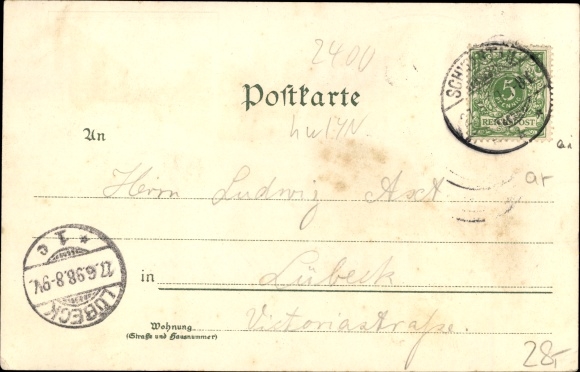 2400
Postkarte
5
REICHSPOST
An
Herrn Ludwig Axt
ar
in Lübeck
Wohnung
(Straße und Hausnummer)
Victoriastraße.
* 1 c
17.6.98.8-9V.
LÜBECK
28,-